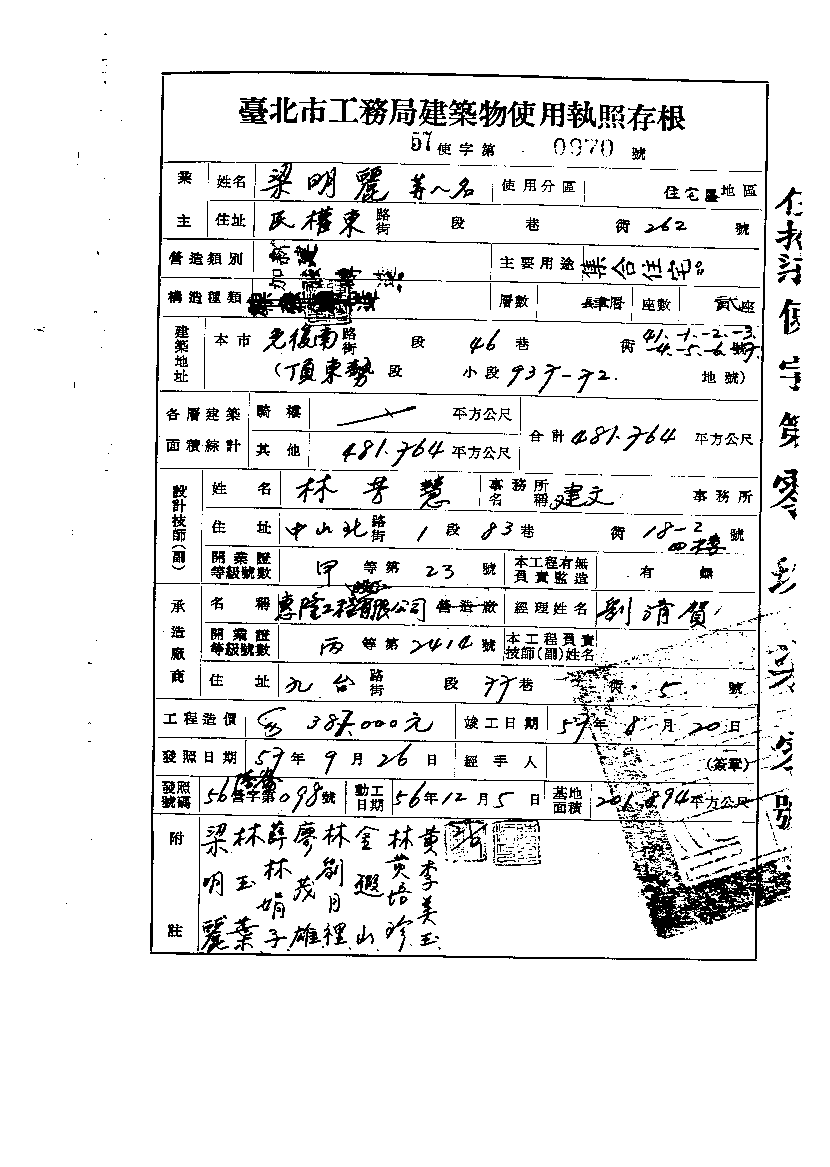 臺北市工務局建築物使用執照存根
57使字第 0970 號
業主 姓名 梁明麗 等八名 使用分區 住宅區地區
住址 民權東路街 段 巷 街 262 號
營造類別 新建 主要用途 集合住宅
構造種類 加強磚造 層數 肆層 座數 貳座
建築地址 本市 光復南路街 段 46 巷 街 41.-1.-2.-3.-4.-5.-6.號
(頂東勢 段 小段 937-72. 地號)
各層建築面積綜計 騎樓 平方公尺 合計 481.764 平方公尺
其他 481.764 平方公尺
設計技師(副) 姓名 林芳慧 事務所名稱 建文 事務所
住址 中山北路街 1 段 83 巷 街 18-2 號 四樓
開業證等級號數 甲 等第 23 號 本工程有無負責監造 有 無
承造廠商 名稱 惠隆工程有限公司 營造廠 經理姓名 劉清賀
開業證等級號數 丙 等第 2414 號 本工程負責技師(副)姓名
住址 九台路街 段 77 巷 街 5 號
工程造價 387.000元 竣工日期 57年 8 月 20 日
發照日期 57 年 9 月 26 日 經手人 (簽章)
發照號碼 56 營字第098號 動工日期 56年12月5日 基地面積 201.894平方公尺
附註
黃李美玉
林黃培珍
金遐山
林劉月裡
廖茂雄
薛林娟子
林玉葉
梁明麗